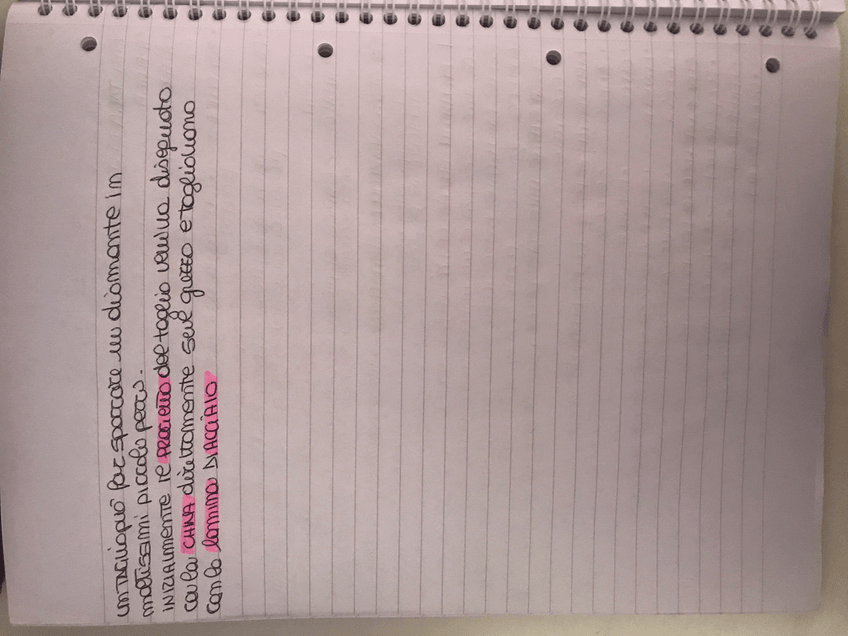 un TAGLIO può far spaccare un diamante in
moltissimi piccoli pezzi.
INIZIALMENTE il PROGETTO del taglio veniva disegnato
con la CHINA direttamente sul grezzo e tagliavano
con la lamina DI ACCIAIO